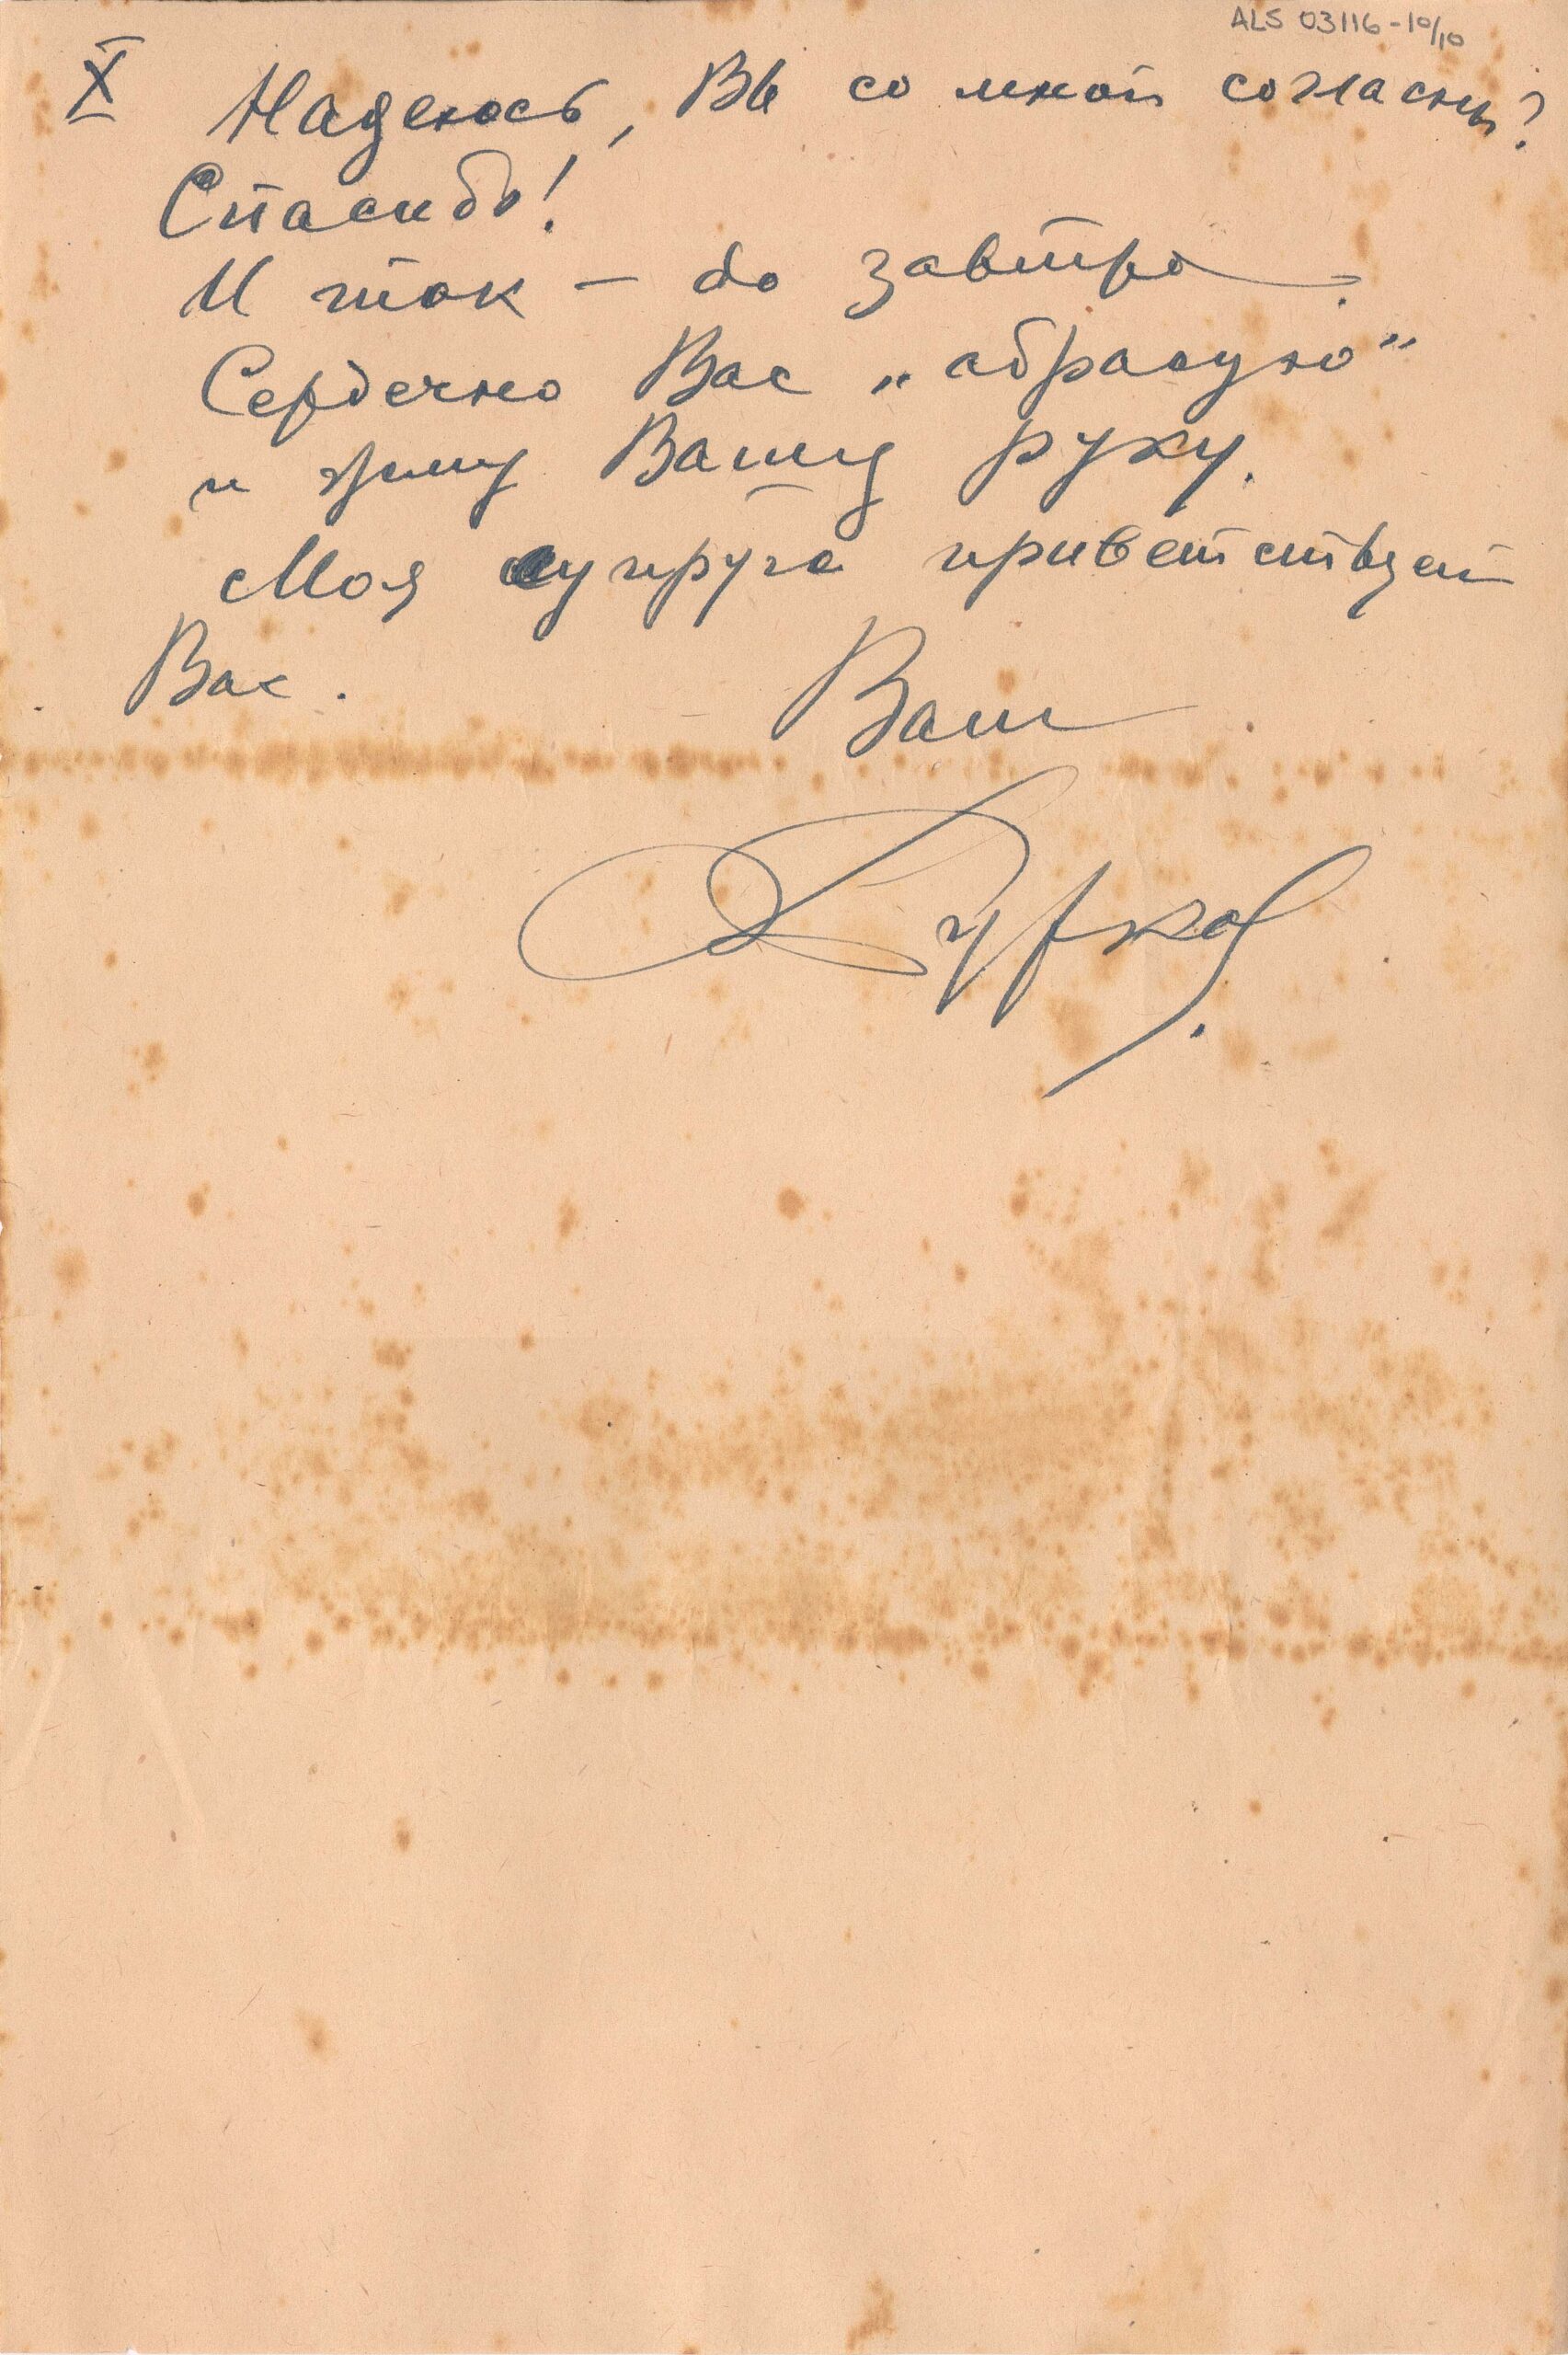 ALS 03116-10/10
X Надеюсь, Вы со мной согласны?
Спасибо!
И так — до завтра.
Сердечно Вас „абрасую“
и жму Вашу руку.
Моя супруга приветствует
Вас.
Ваш